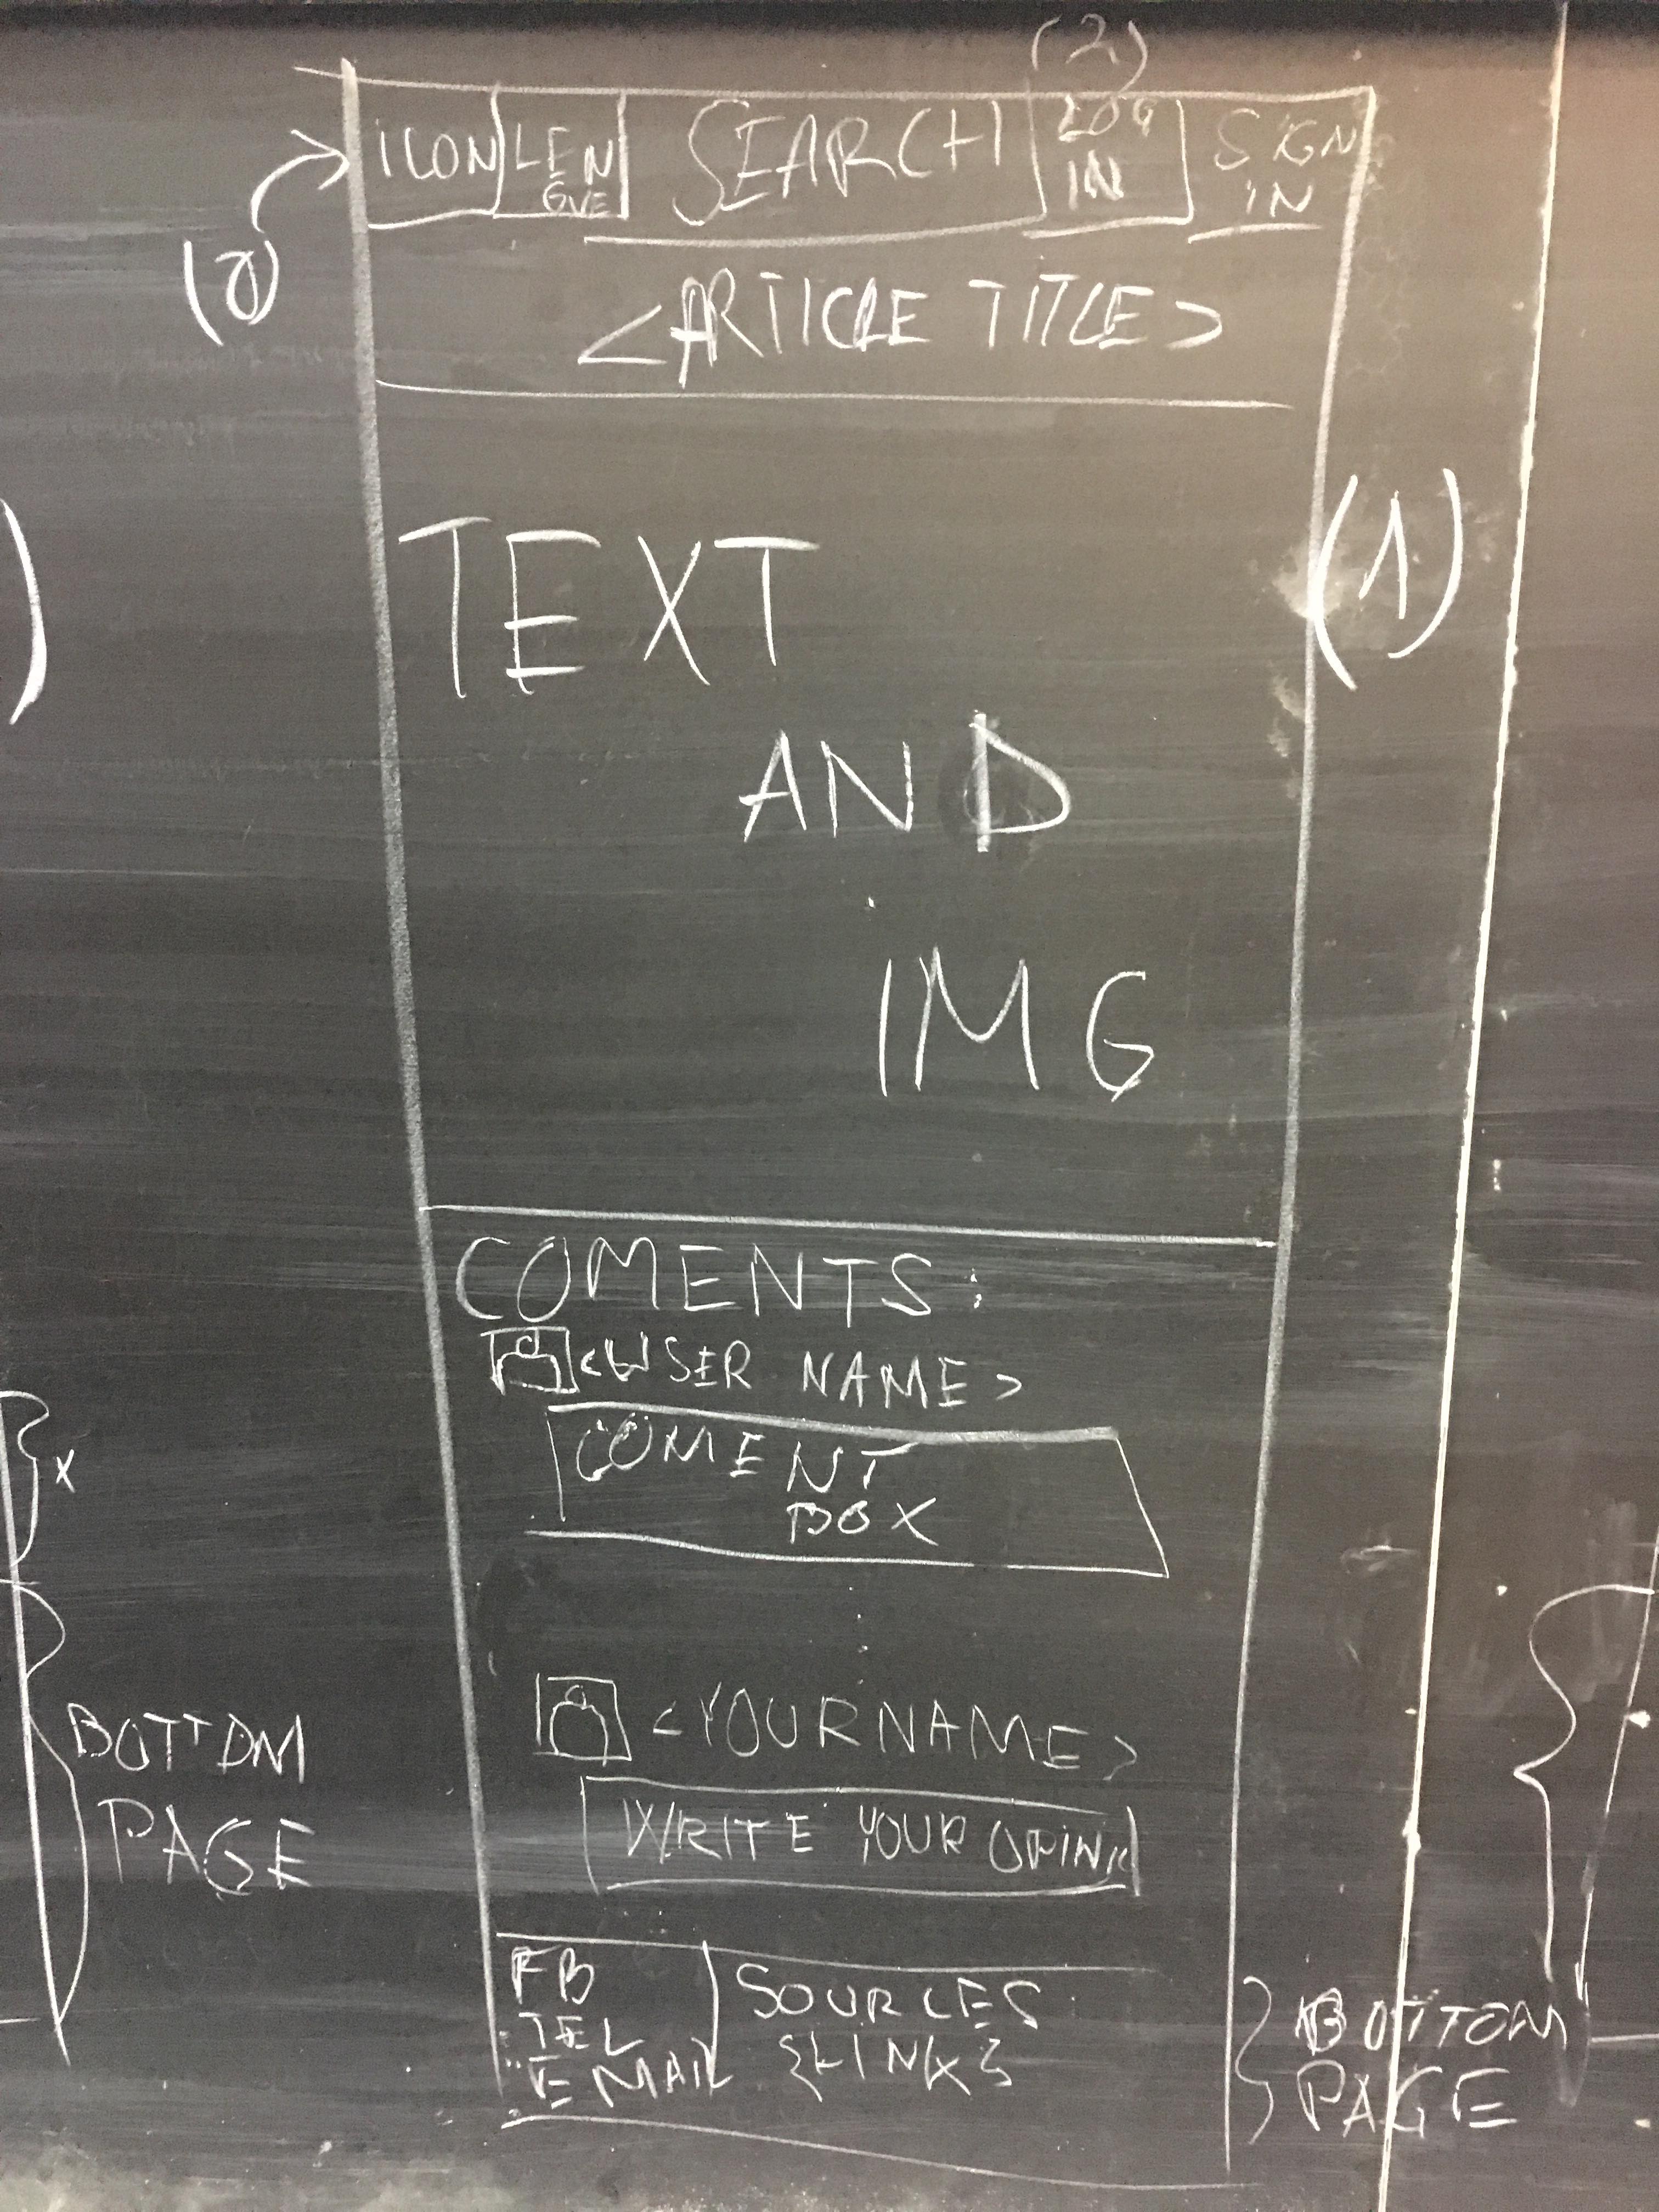 (2)
ICON LEN GUE SEARCH LOG IN SIGN IN
(0)
<ARTICLE TITLE>
TEXT
(1)
AND
IMG
COMENTS:
<USER NAME>
COMENT
BOX
X
<YOUR NAME>
BOTTOM
PAGE
WRITE YOUR OPINI
FB
TEL
EMAIL
SOURCES
{LINK}
BOTTOM
PAGE